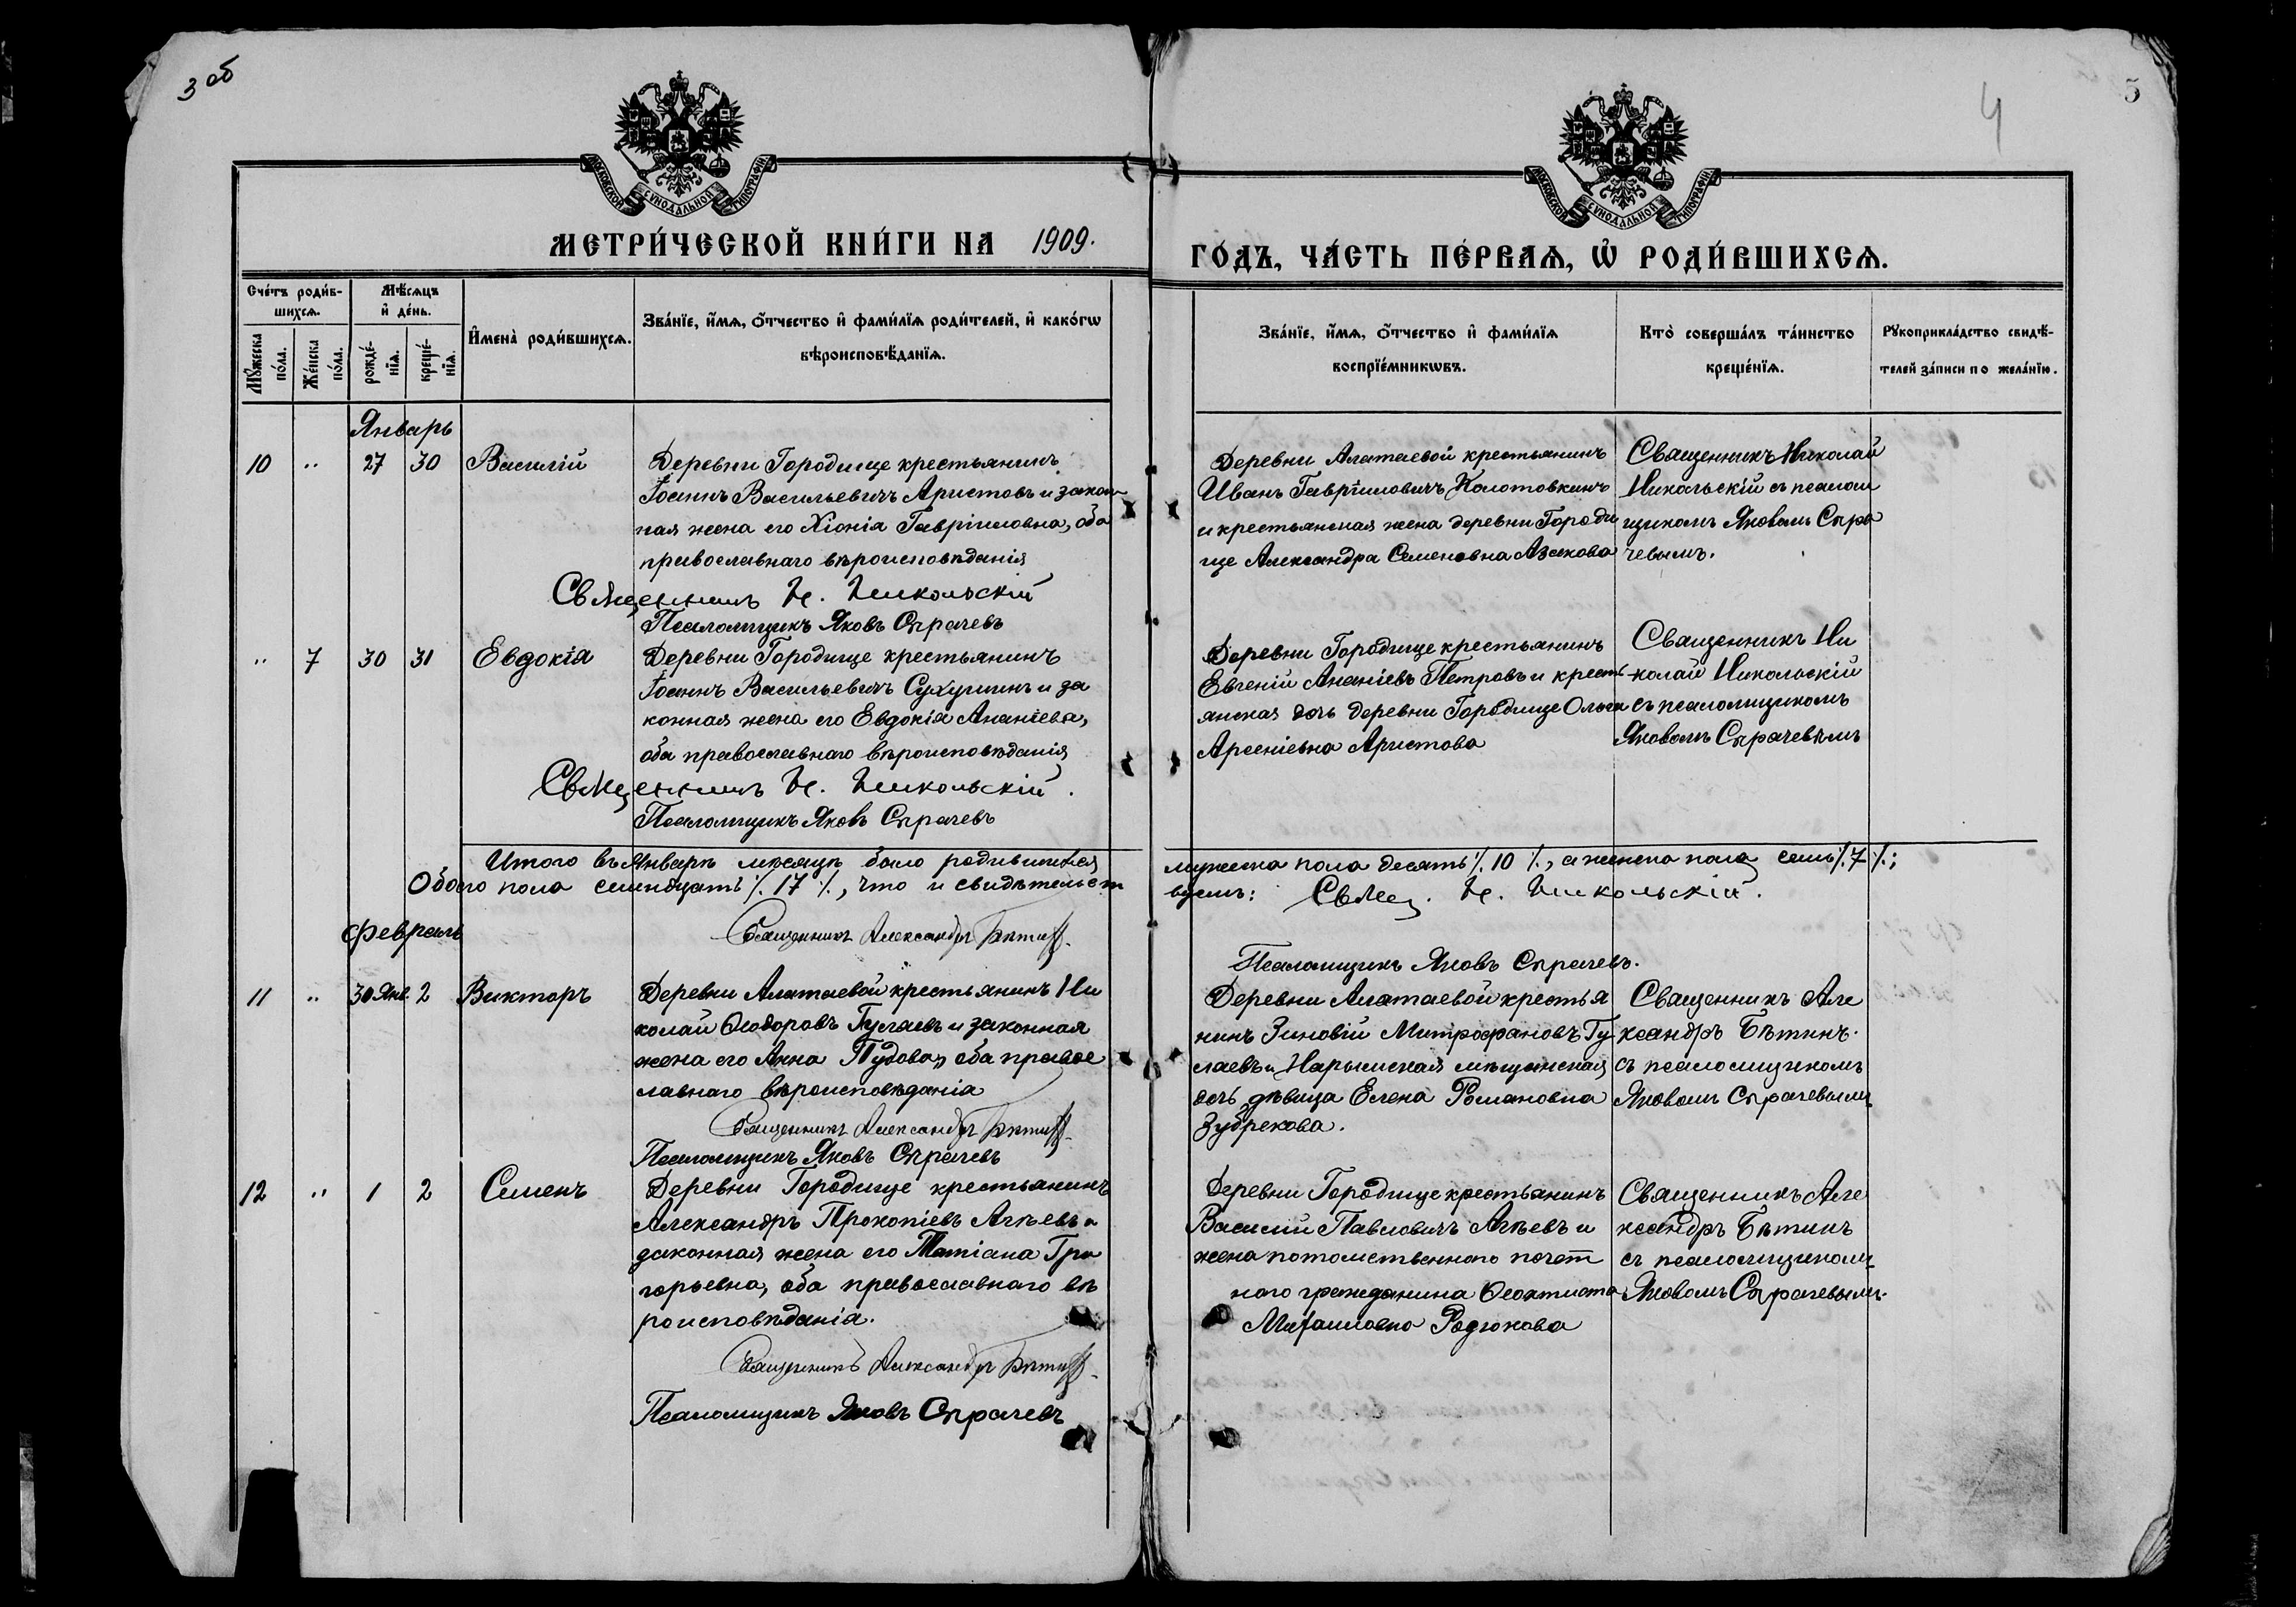 3 об
4
5
МОСКОВСКОЙ СѴНОДАЛЬНОЙ ТИПОГРАФІИ
МОСКОВСКОЙ СѴНОДАЛЬНОЙ ТИПОГРАФІИ
МЕТРИ́ЧЕСКОЙ КНИ́ГИ НА 1909.
ГО́ДЪ, ЧА́СТЬ ПЕ́РВАѦ, Ѡ҆ РОДИ́ВШИХСѦ.
Сче́тъ роди́в-
шихсѧ.
Мѣ́сѧцъ
и҆ де́нь.
Мꙋ́жеска
по́ла.
Же́нска
по́ла.
рожде́-
нїѧ.
креще́-
нїѧ.
И҆мена̀ роди́вшихсѧ.
Зва́нїе, и҆́мѧ, ѻ҆́тчество и҆ фами́лїѧ роди́телей, и҆ како́гѡ
вѣроисповѣ́данїѧ.
Зва́нїе, и҆́мѧ, ѻ҆́тчество и҆ фами́лїѧ
воспрїе́мникѡвъ.
Кто̀ соверша́лъ та́инство
креще́нїѧ.
Рꙋкоприкла́дство свидѣ́-
телей за́писи по жела́нїю.
Январь
10 " 27 30 Василій
Деревни Городище крестьянинъ
Іоаннъ Васильевичъ Аристовъ и закон-
ная жена его Хіонія Гавріиловна, оба
православнаго вѣроисповѣданія
Священникъ Н. Никольскій
Псаломщикъ Яковъ Сырачевъ
Деревни Алатаевой крестьянинъ
Иванъ Гавріиловичъ Колотовкинъ
и крестьянская жена деревни Городи
ще Александра Семеновна Азакова
Священникъ Николай
Никольскій съ псалом
щикомъ Яковомъ Сыра
чевымъ.
" 7 30 31 Евдокія
Деревни Городище крестьянинъ
Іоаннъ Васильевичъ Сухушинъ и за
конная жена его Евдокія Ананіева,
оба православнаго вѣроисповѣданія
Священникъ Н. Никольскій.
Псаломщикъ Яковъ Сырачевъ
Деревни Городище крестьянинъ
Евгеній Ананіевъ Петровъ и кресть-
янская дочь деревни Городище Ольга
Арсеніевна Аристова
Священникъ Ни
колай Никольскій
съ псаломщикомъ
Яковомъ Сырачевымъ
Итого въ Январѣ мѣсяцѣ было родившихся
мужеска пола десять ∕. 10 ∕., а женска пола семь ∕. 7 ∕.;
Обоего пола семнадцать ∕. 17 ∕., что и свидѣтельст
вуемъ: Свящ. Н. Никольскій.
Священникъ Александръ Бѣтинъ
Псаломщикъ Яковъ Сырачевъ.
февраль
11 " 30 Янв. 2 Викторъ
Деревни Алатаевой крестьянинъ Ни
колай Ѳеодоровъ Гуслаевъ и законная
жена его Анна Пудова, оба правос
лавнаго вѣроисповѣданія
Священникъ Александръ Бѣтинъ
Псаломщикъ Яковъ Сырачевъ
Деревни Алатаевой крестья
нинъ Зиновій Митрофановъ Гу
слаевъ и Нарымская мѣщанская
дочь дѣвица Елена Романовна
Зубрекова.
Священникъ Але
ксандръ Бѣтинъ.
съ псаломщикомъ
Яковомъ Сырачевымъ
12 " 1 2 Семенъ
Деревни Городище крестьянинъ
Александръ Прокопіевъ Агѣевъ и
законная жена его Татіана Гри
горьевна, оба православнаго вѣ
роисповѣданія.
Священникъ Александръ Бѣтинъ
Псаломщикъ Яковъ Сырачевъ
Деревни Городище крестьянинъ
Василій Павловичъ Агѣевъ и
жена потомственнаго почет
наго гражданина Ѳеоктиста
Михаиловна Родюкова
Священникъ Але
ксандръ Бѣтинъ
съ псаломщикомъ
Яковомъ Сырачевымъ.